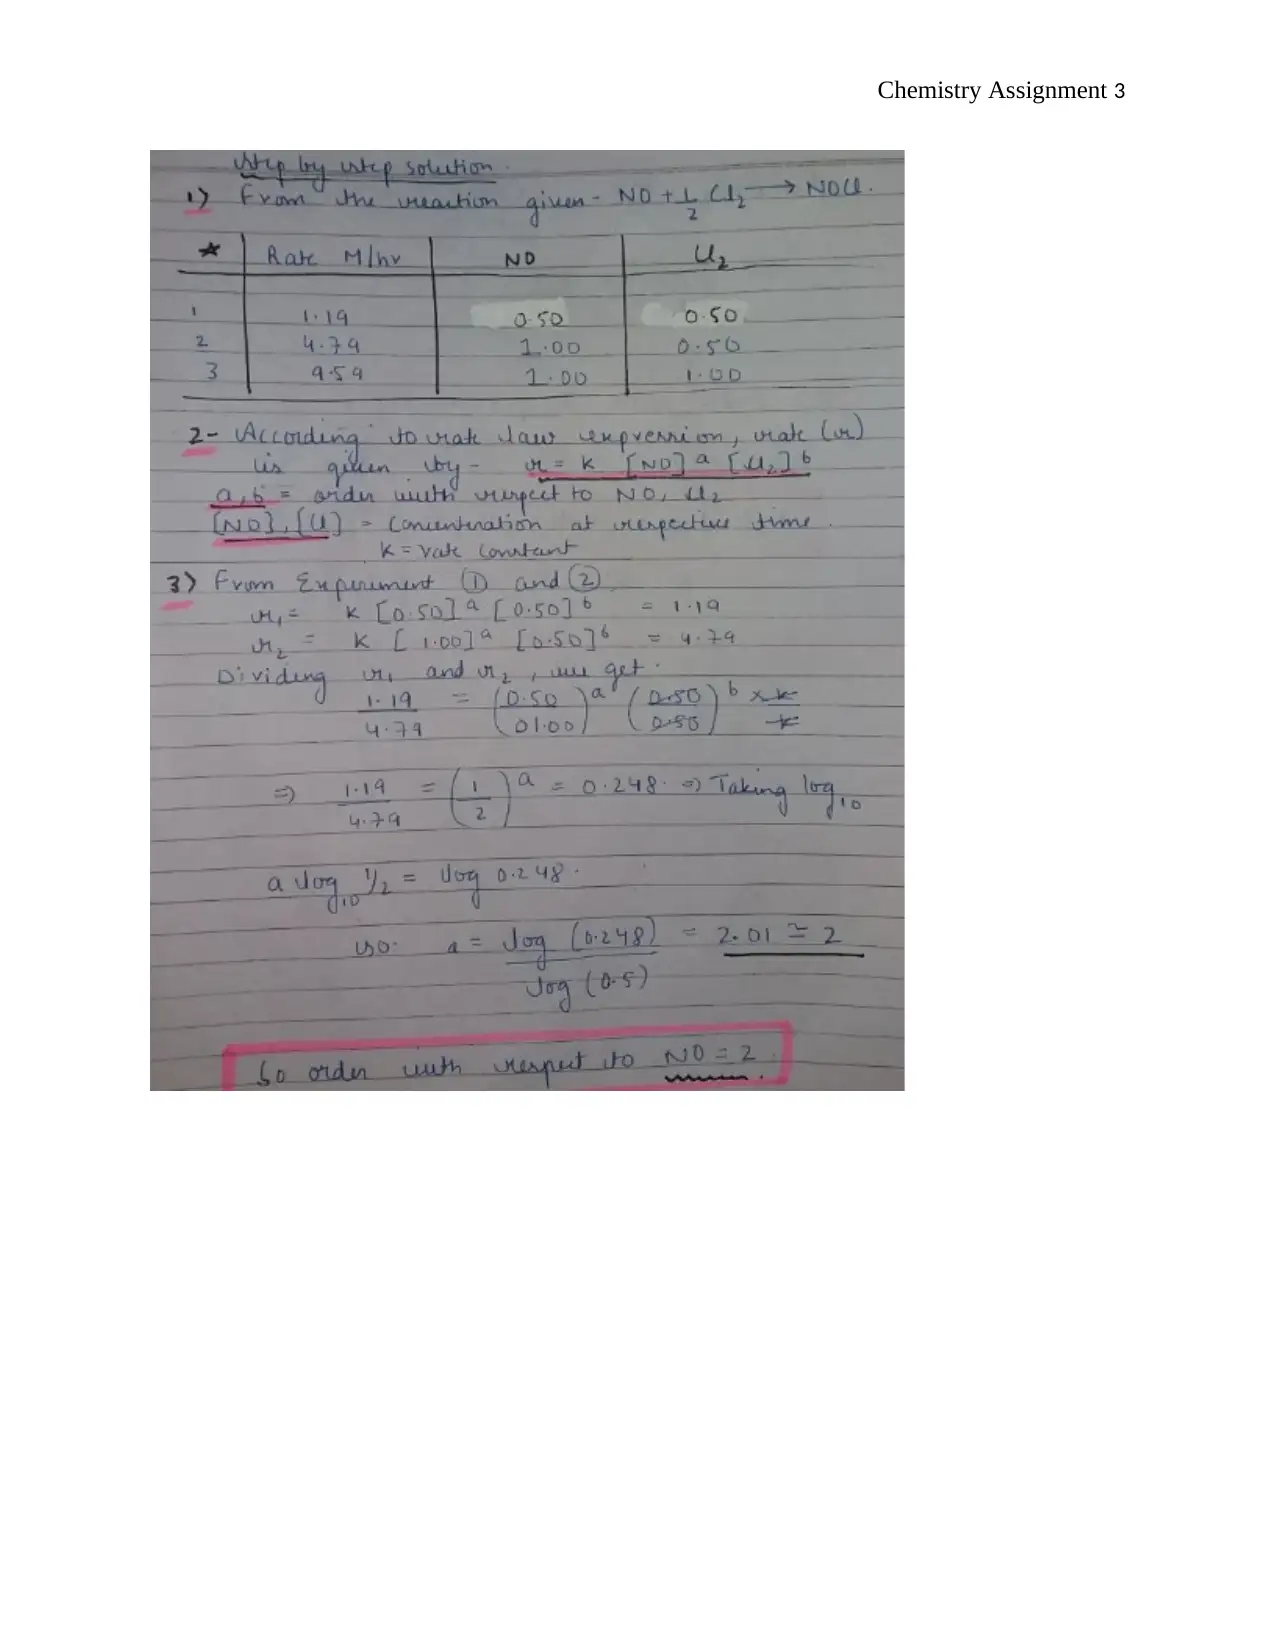 Chemistry Assignment 3
Step by step solution.
1) From the reaction given - NO + 1/2 Cl2 → NOCl.
* Rate M/hr NO Cl2
1 1.19 0.50 0.50
2 4.79 1.00 0.50
3 9.59 1.00 1.00
2- According to rate law expression, rate (r)
is given by - r = k [NO]^a [Cl2]^b
a, b = order with respect to NO, Cl2
[NO], [Cl] = Concentration at respective time.
K = rate constant
3) From Experiment ① and ②
r1 = K [0.50]^a [0.50]^b = 1.19
r2 = K [1.00]^a [0.50]^b = 4.79
Dividing r1 and r2, we get.
1.19/4.79 = (0.50/01.00)^a (0.50/0.50)^b × k/k
⇒ 1.19/4.79 = (1/2)^a = 0.248. ⇒ Taking log10
a log10 1/2 = log 0.248.
so. a = log (0.248)/log (0.5) = 2.01 ≃ 2
So order with respect to NO = 2.